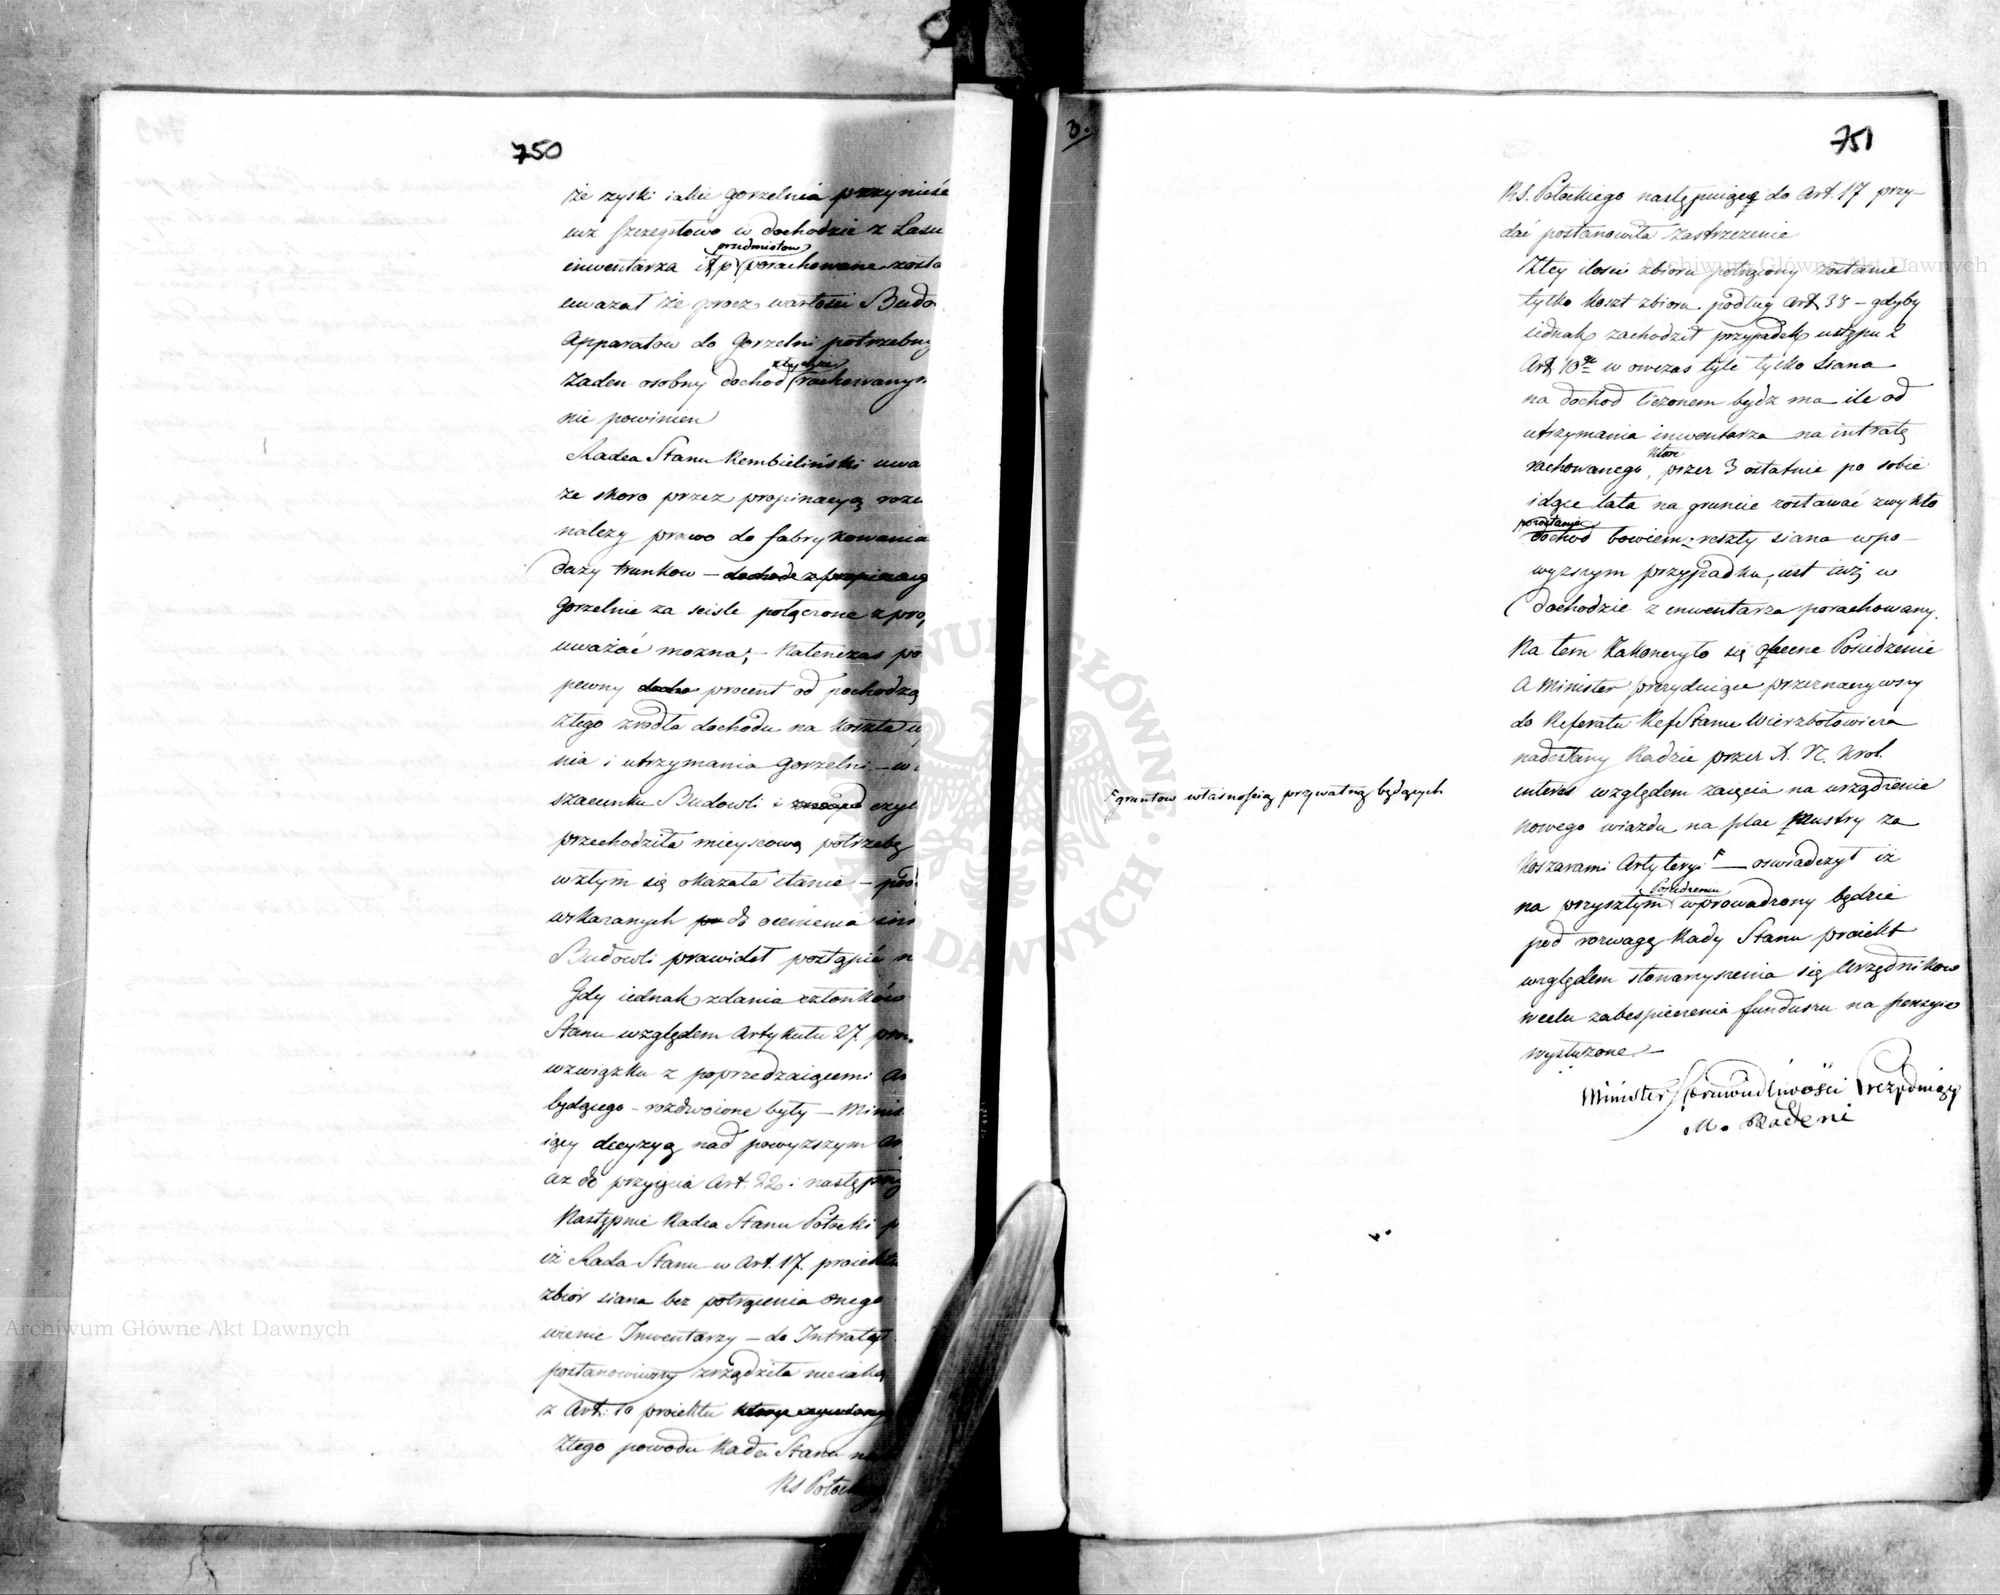 750
że zyski iakie gorzelnia przynieśe
iuż szczegułowo w dochodzie z Lasu
przedmiotow
inwentarza itp porachowane zosta
uważał że procz wartości Budo
Apparatow do Gorzelni potrzebny
ztychże
żaden osobny dochod rachowanym
nie powinien
Radca Stanu Rembieliński uwa
że skoro przez propinacyą rozu
należy prawo do fabrykowania
daży trunkow – dochode z propinacyi
gorzelnie za scisle połączone z pro
uważać można; – Natenczas po
pewny docho procent od pochodzą
ztego zrodła dochodu na koszta
nia i utrzymania Gorzelni – w
szacunku Budowli i czyl
przechodziła mieyscową potrzebę
wztym się okazała stanie – pod
wskazanych po do ocenienia inn
Budowli prawideł postąpić n
Gdy iednak zdania członków
Stanu względem Artykułu 27. pro
wzwiązku z poprzedzaiącemi Ar
będącego – rozdwoione były – Minis
iący decyzyą nad powyższym Ar
aż do przyięcia Art. 22 i następny
Następnie Radca Stanu Potocki p
iż Rada Stanu w Art. 17. proiektu
zbiór siana bez potrącenia onego
wienie Inwentarzy – do Intraty
postanowiwszy zrządziła nieiaką
z Art: 10 proiektu
Ztego powodu Rada Stanu na
RS Potock
3.
751
RS. Potockiego następuiące do Art. 17 przy-
dać postanowiła zastrzeżenie
Ztey ilości zbioru potrącony zostanie
tylko koszt zbioru podług Art 38 – gdyby
iednak zachodził przypadek ustępu 2
Art. 10go w owczas tyle tylko siana
na dochod liczonem bydz ma ile od
utrzymania inwentarza na intratę
które
rachowanego, przez 3 ostatnie po sobie
idące lata na gruncie zostawać zwykło
dochod bowiem z reszty siana w po-
wyższym przypadku, iest iuż w
dochodzie z inwentarza porachowany.
Na tem zakończyło się obecne Posiedzenie
A Minister prezyduiący przeznaczywszy
do Referatu Ref Stanu Wierzbołowicza
nadesłany Radzie przez X. N. Krol.
interes względem zaięcia na urządzenie
nowego wiazdu na plac Mustry za
koszarami Artyleryi F — oswiadczył iż
F gruntow własnością prywatną będących
Posiedzeniu
na przyszłym wprowadzony będzie
pod rozwagę Rady Stanu proiekt
względem stowarzyszenia się Urzędnikow
wcelu zabespieczenia funduszu na pensyie
wysłużone. –
Minister Sprawiedliwości Prezyduiący
M. Badeni